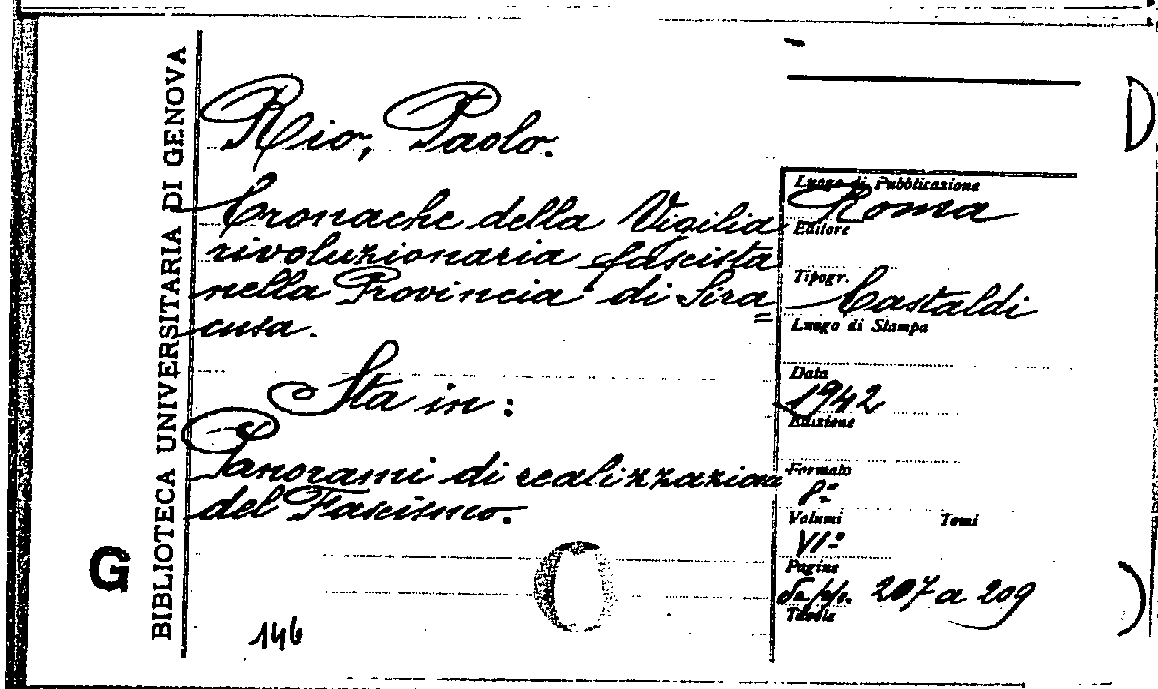 BIBLIOTECA UNIVERSITARIA DI GENOVA
G
Rio, Paolo.
Cronache della Vigilia
rivoluzionaria fascista
nella Provincia di Sira
=
cusa.
Sta in:
Panorami di realizzazioni
del Fascismo.
146
Luogo di Pubblicazione
Roma
Editore
Tipogr.
Castaldi
Luogo di Stampa
Data
1942
Edizione
Formato
8º
Volumi Tomi
VIº
Pagine
Da pp. 207 a 209
Tavole